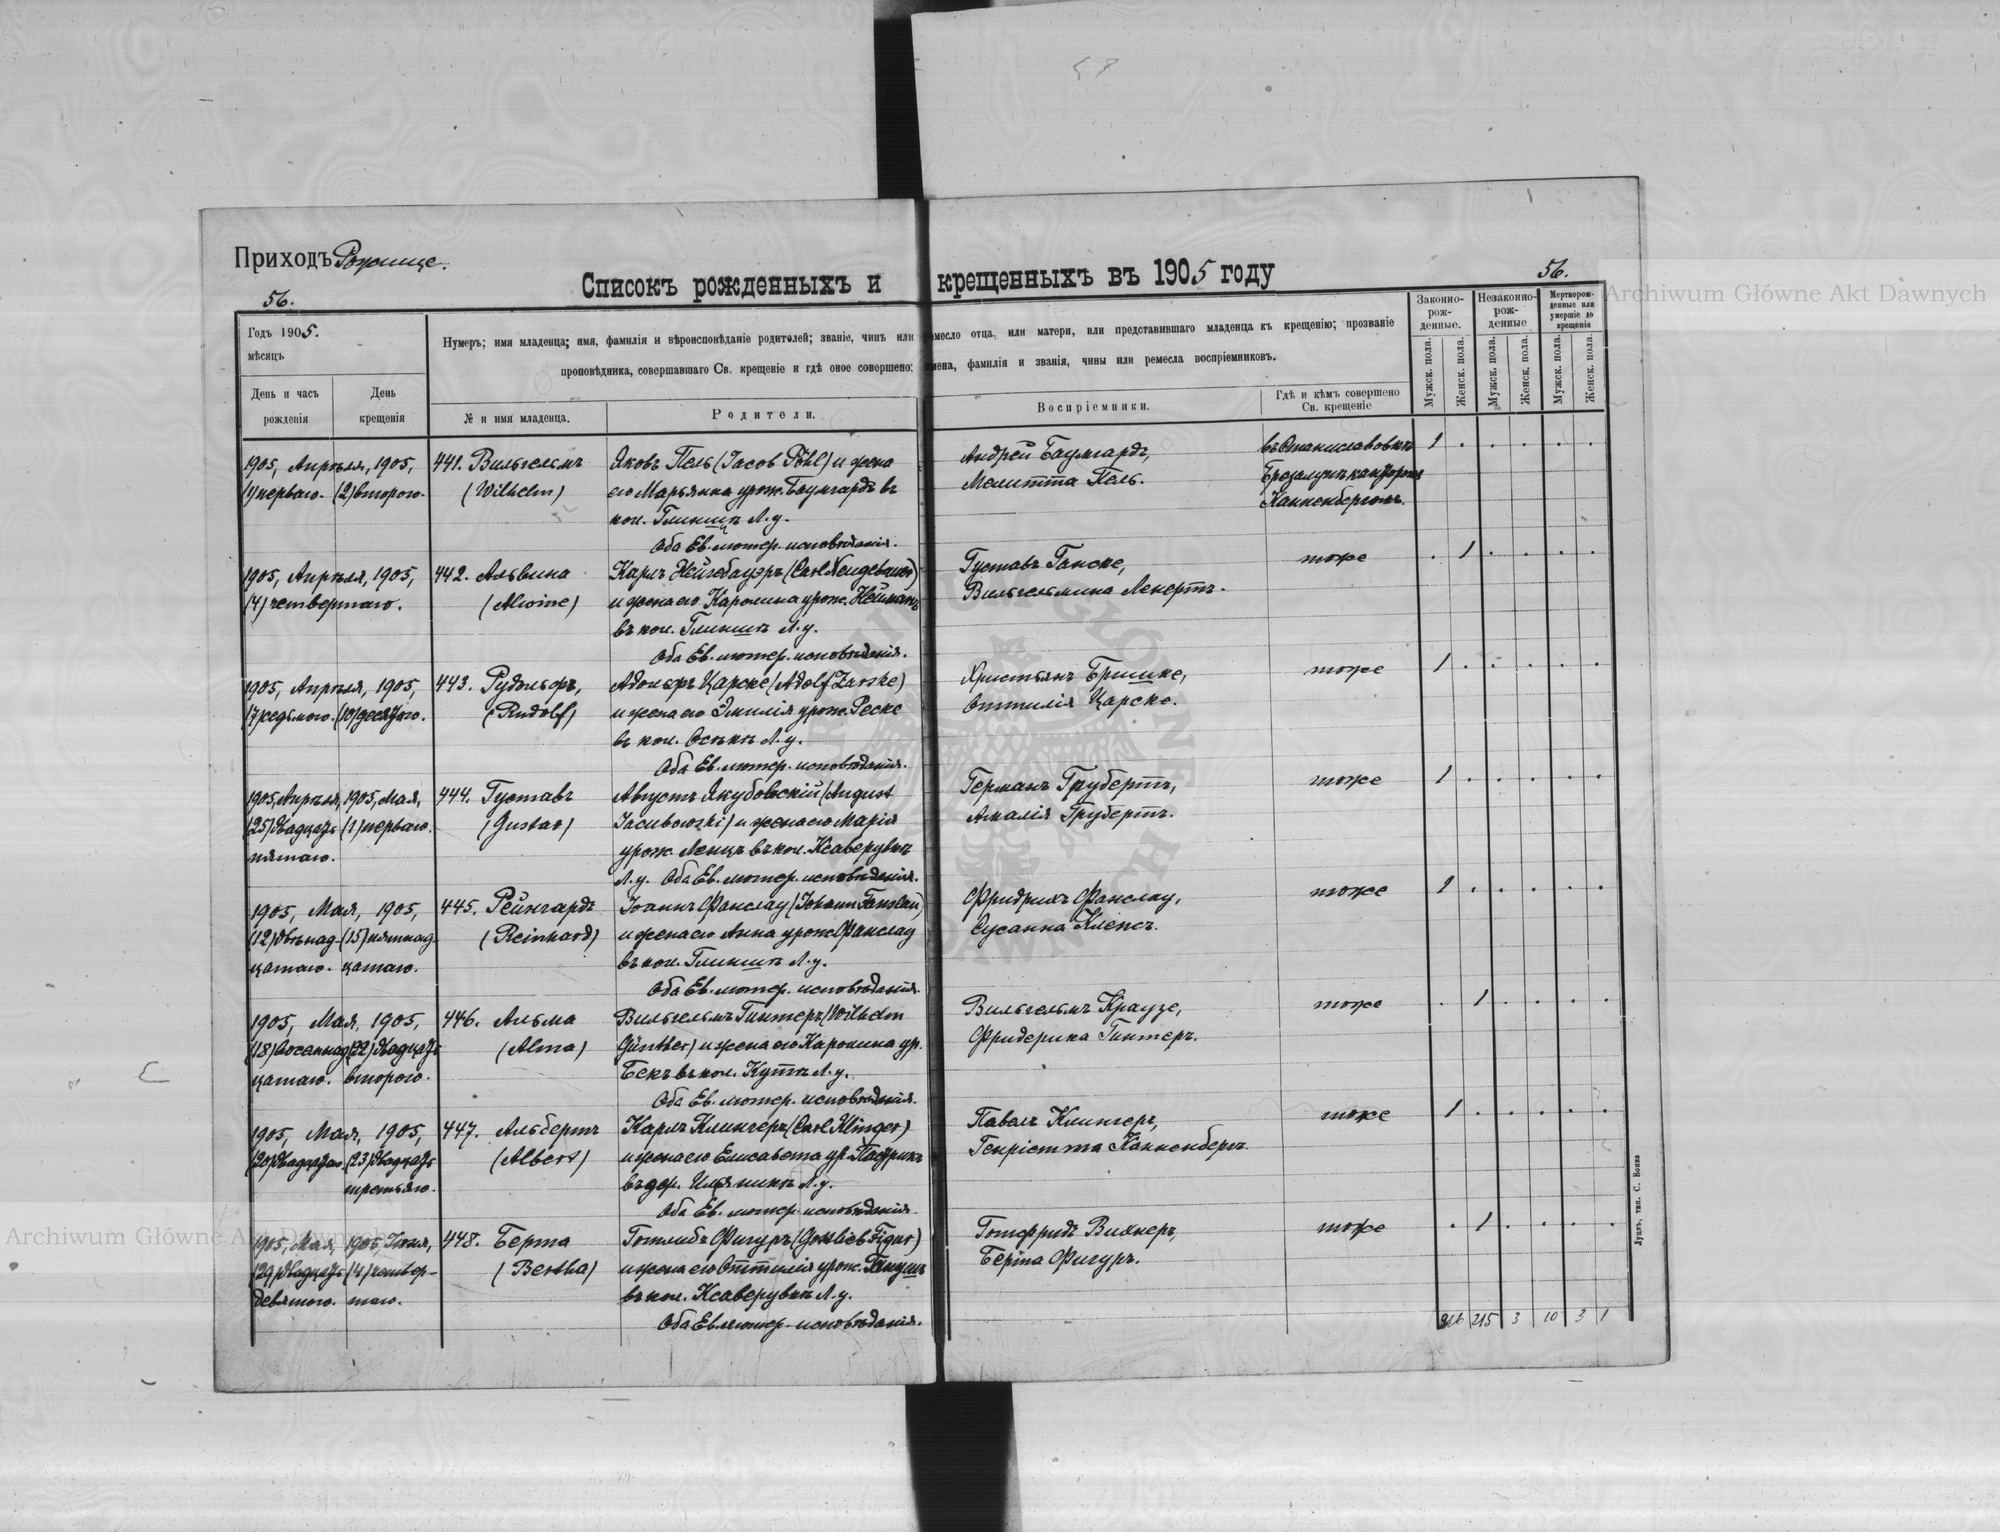 Приходъ Рожище.
56.
Списокъ рожденныхъ и крещенныхъ въ 1905 году
56.
Archiwum Główne Akt Dawnych
Годъ 1905.
мѣсяцъ
День и часъ рожденія
День крещенія
Нумеръ; имя младенца; имя, фамилія и вѣроисповѣданіе родителей; званіе, чинъ или ремесло отца, или матери, или представившаго младенца къ крещенію; прозваніе
проповѣдника, совершавшаго Св. крещеніе и гдѣ оное совершено; имена, фамилія и званія, чины или ремесла воспріемниковъ.
№ и имя младенца.
Родители.
Воспріемники.
Гдѣ и кѣмъ совершено
Св. крещеніе
Законно-
рож-
денные.
Незаконно-
рож-
денные
Мертворож-
денные или
умершіе до
крещенія
Мужск. пола.
Женск. пола.
Мужск. пола.
Женск. пола.
Мужск. пола.
Женск. пола.
1905, Апрѣля, 1905, 441. Вильгельмъ Яковъ Пель (Jacob Pöhl) и жена Андрей Баумгардъ, въ Станиславовкѣ 1
(1) перваго. (2) второго. (Wilhelm) его Марьянна урож. Баумгардъ въ Мелитта Пель. кантором
кол. Глинищѣ Л. у. Канненбергомъ.
Оба Ев. лютер. исповѣданія.
1905, Апрѣля, 1905, 442. Альвина Карлъ Нейгебауэръ (Carl Neugebauer) Густавъ Ганске, тоже 1
(4) четвертаго. (Alwine) и жена его Каролина урож. Нейманъ Вильгельмина Ленертъ.
въ кол. Глинищѣ Л. у.
Оба Ев. лютер. исповѣданія.
1905, Апрѣля, 1905, 443. Рудольфъ, Адольфъ Царске (Adolf Zarske) Христьянъ Бришке, тоже 1
(7) седьмого. (10) десятаго. (Rudolf) и жена его Эмилія урож. Реске Оттилія Царске.
въ кол. Осѣкѣ Л. у.
Оба Ев. лютер. исповѣданія.
1905, Апрѣля, 1905, Мая, 444. Густавъ Августъ Якубовскій (August Германъ Грубертъ, тоже 1
(25) двадцать (1) перваго. (Gustav) Jacubowski) и жена его Марія Амалія Грубертъ.
пятаго. урож. Ленцъ въ кол. Ксаверувкѣ
Л. у. Оба Ев. лютер. исповѣданія.
1905, Мая, 1905, 445. Рейнгардъ Іоаннъ Фанслау (Johann Fanslau) Фридрихъ Фанслау, тоже 1
(12) двѣнад- (15) пятнад- (Reinhard) и жена его Анна урож. Фанслау Сусанна Клепсъ.
цатаго. цатаго. въ кол. Глинищѣ Л. у.
Оба Ев. лютер. исповѣданія.
1905, Мая, 1905, 446. Альма Вильгельмъ Гинтеръ (Wilhelm Вильгельмъ Краузе, тоже 1
(18) восемнад- (22) двадцать (Alma) Günther) и жена его Каролина ур. Фридерика Гинтеръ.
цатаго. второго. Бекъ въ кол. Кутѣ Л. у.
Оба Ев. лютер. исповѣданія.
1905, Мая, 1905, 447. Альбертъ Карлъ Клингеръ (Carl Klinger) Павелъ Клингеръ, тоже 1
(20) двадцатаго (23) двадцать (Albert) и жена его Елисавета ур. Патрикъ Генріетта Канненбергъ.
третьяго. въ дер. Л. у.
Оба Ев. лютер. исповѣданія.
1905, Мая, 1905, Іюня, 448. Берта Готлибъ Фигуръ (Gottlieb Figur) Готфридъ Вихнеръ, тоже 1
(29) двадцать (4) четвер- (Bertha) и жена его Оттилія урож. Ганушъ Берта Фигуръ.
девятого. таго. въ кол. Ксаверувкѣ Л. у.
Оба Ев. лютер. исповѣданія.
215 3 10 3 1
Луцкъ, тип. С. Бонка
Archiwum Główne Akt Dawnych